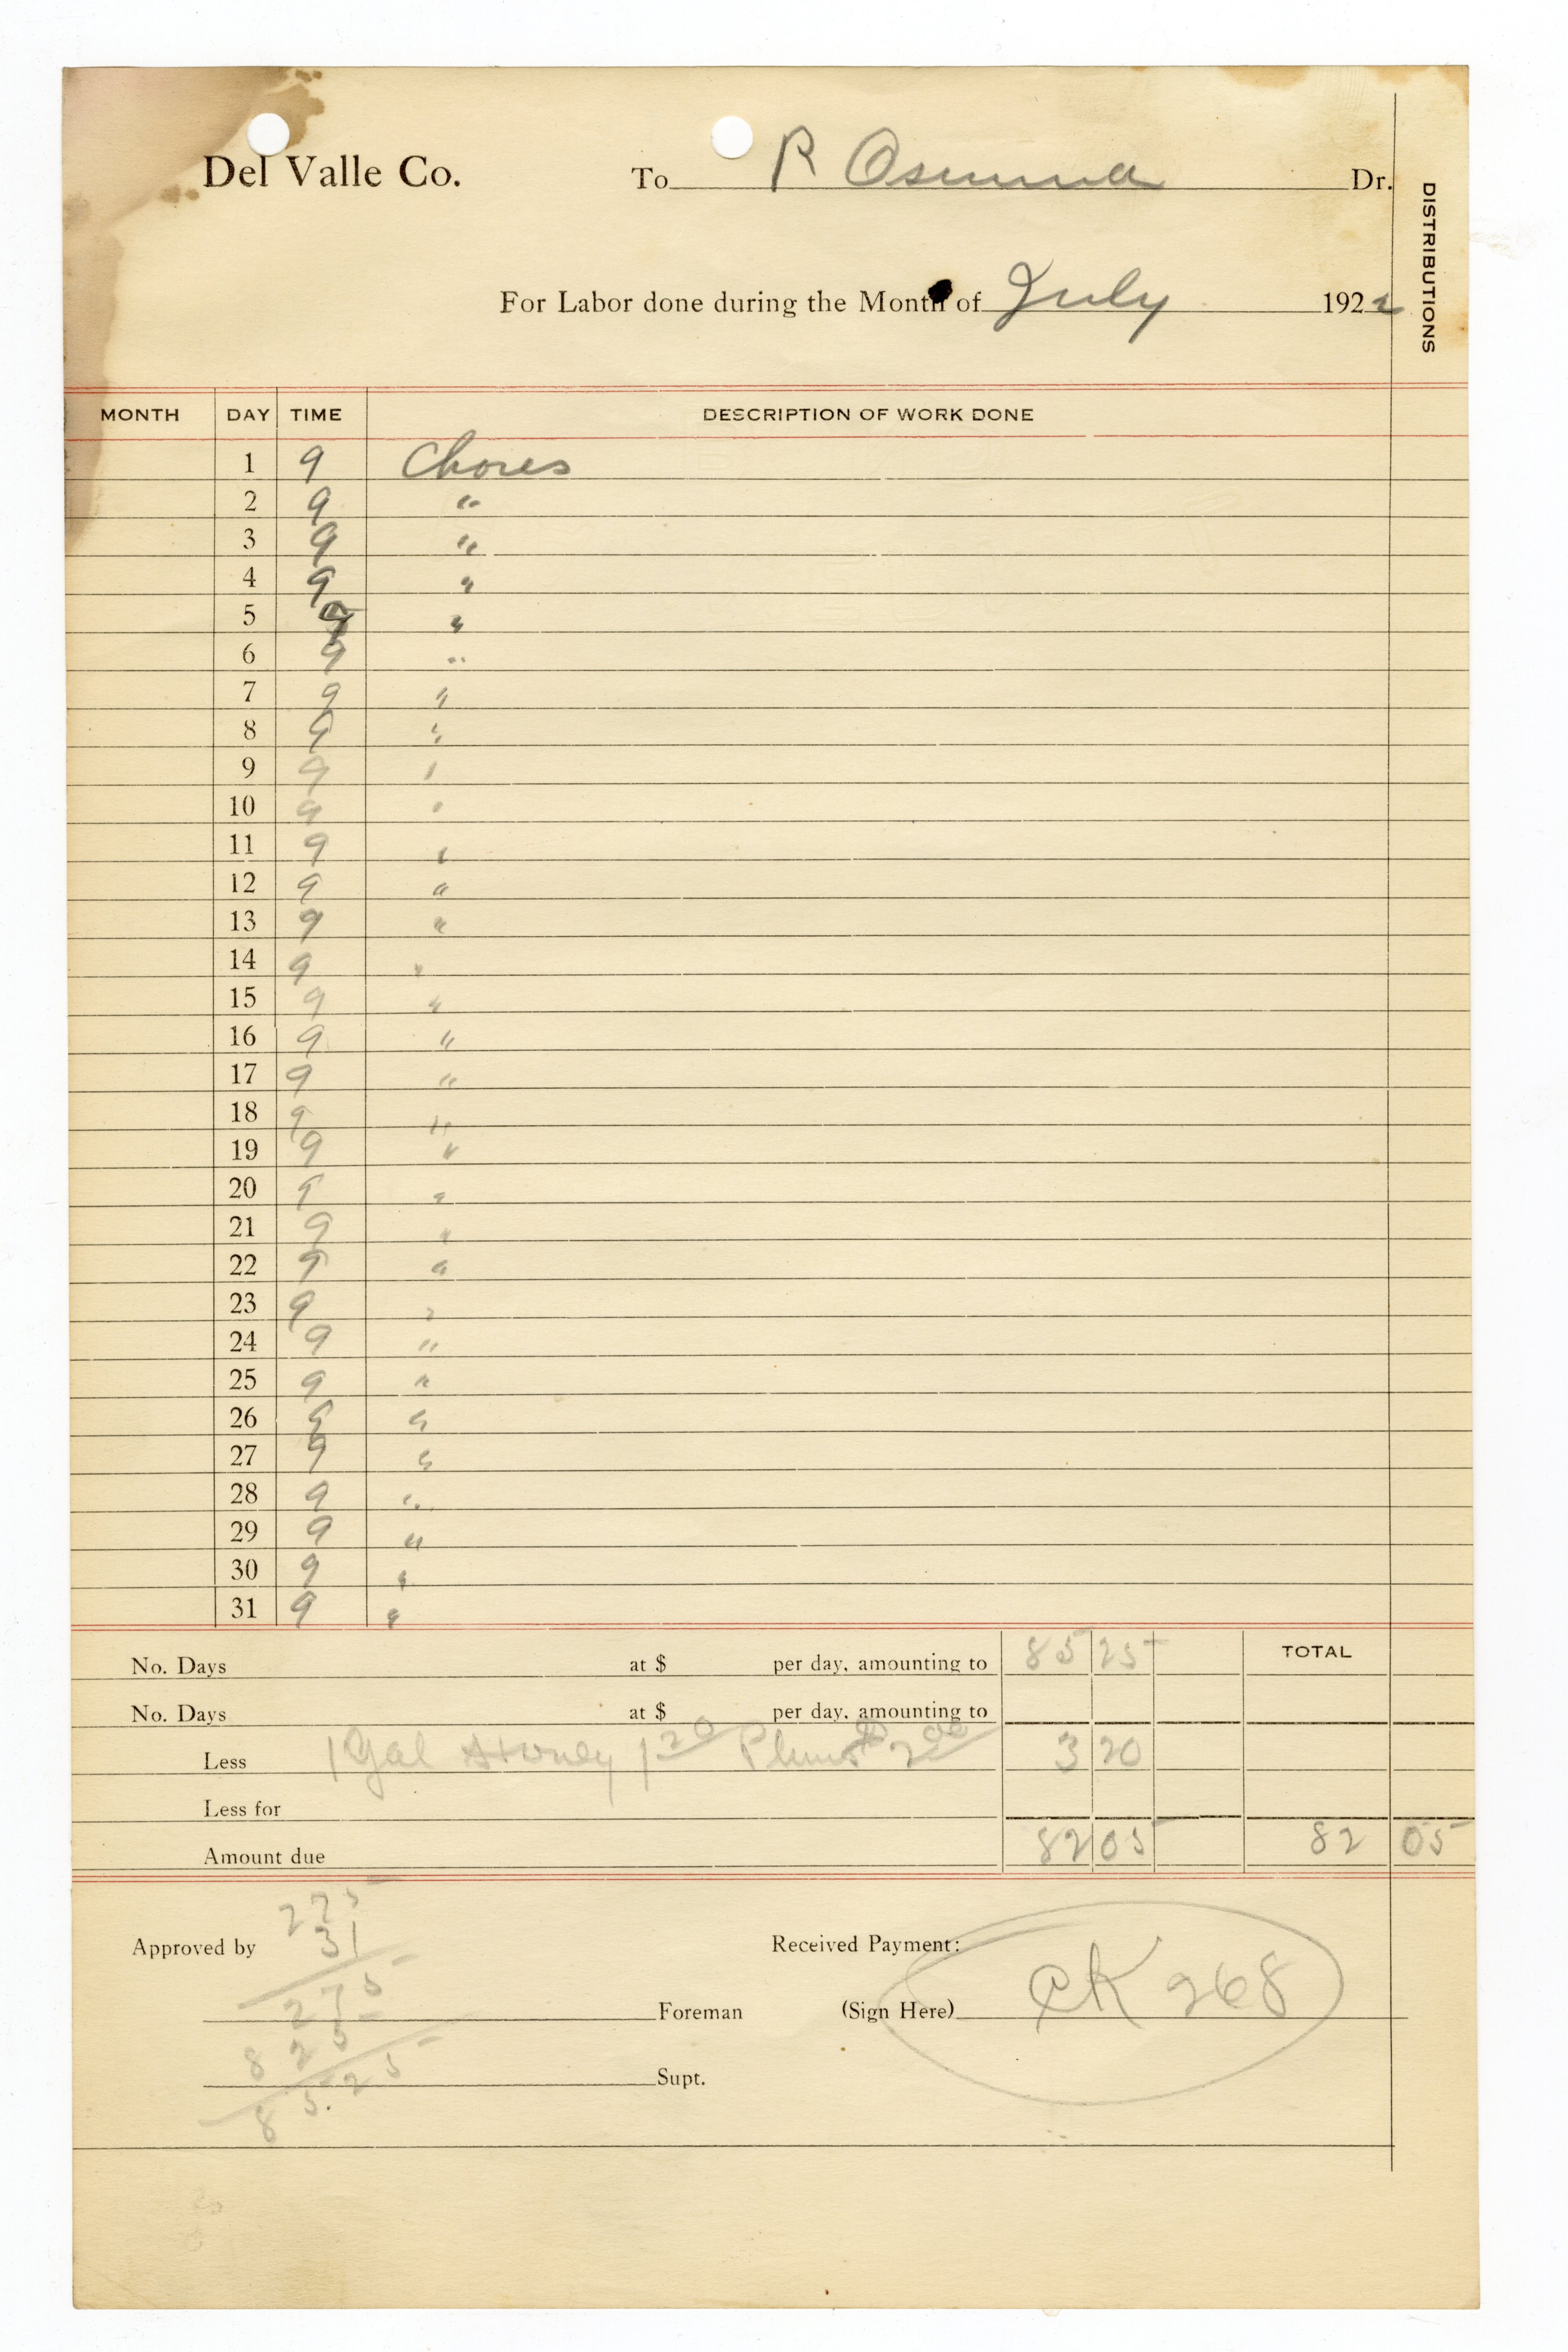 Del Valle Co. To R Osunna Dr.
DISTRIBUTIONS
For Labor done during the Month of July 1922
MONTH DAY TIME DESCRIPTION OF WORK DONE
1 9 Chores
2 9 "
3 9 "
4 9 "
5 9 "
6 9 "
7 9 "
8 9 "
9 9 "
10 9 "
11 9 "
12 9 "
13 9 "
14 9 "
15 9 "
16 9 "
17 9 "
18 9 "
19 9 "
20 9 "
21 9 "
22 9 "
23 9 "
24 9 "
25 9 "
26 9 "
27 9 "
28 9 "
29 9 "
30 9 "
31 9 "
No. Days at $ per day, amounting to 85 25 TOTAL
No. Days at $ per day, amounting to
Less 1 Gal Honey 1 20 2 00 3 20
Less for
Amount due 82 05 82 05
275
31
Approved by Received Payment:
275
Foreman (Sign Here) CK 268
825
Supt.
85.25